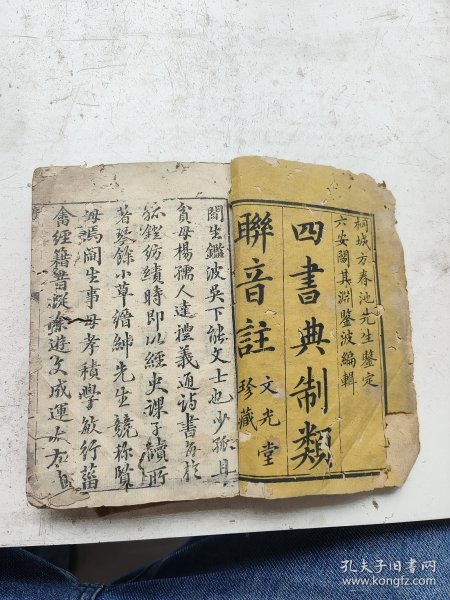 桐城方春池先生鑒定
六安閻其淵鑒波編輯
四書典制類
聯音註
文光堂
珍藏
閻生鑑波吳下能文士也少孤且
貧母楊孺人達禮義通詩書
紡績時即以經史課子
著琴餘小草縉紳先生競稱
閻生事母孝積學敏行
經籍
孔夫子旧书网
www.kongfz.com